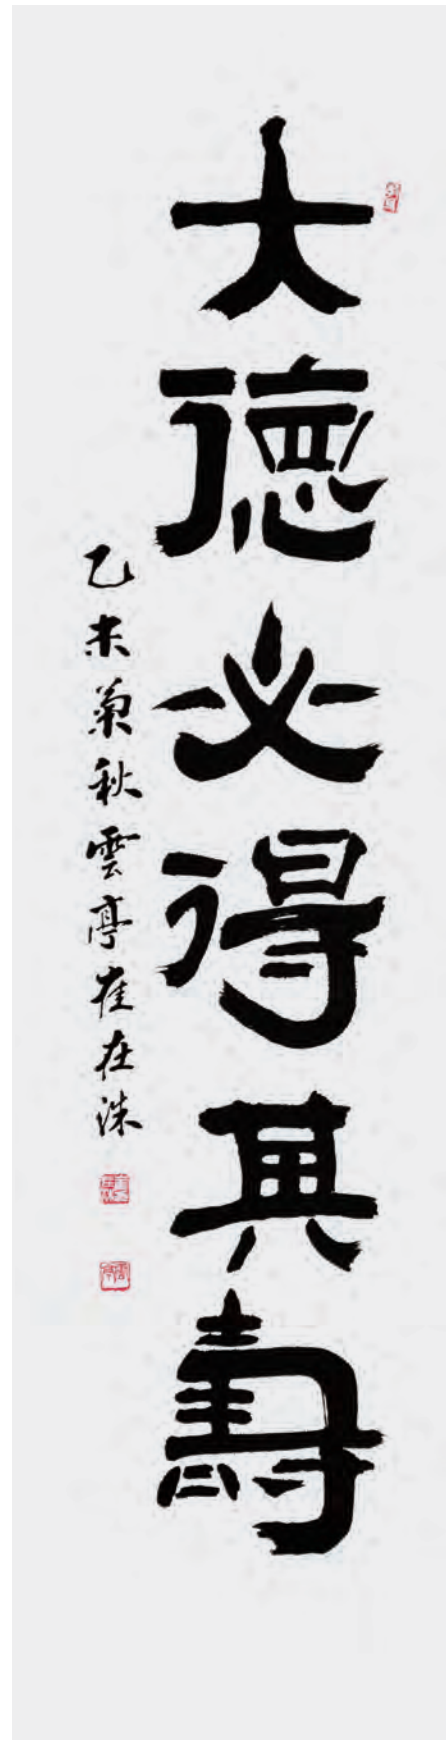 大德必得其壽
乙未菊秋雲亭崔在洙